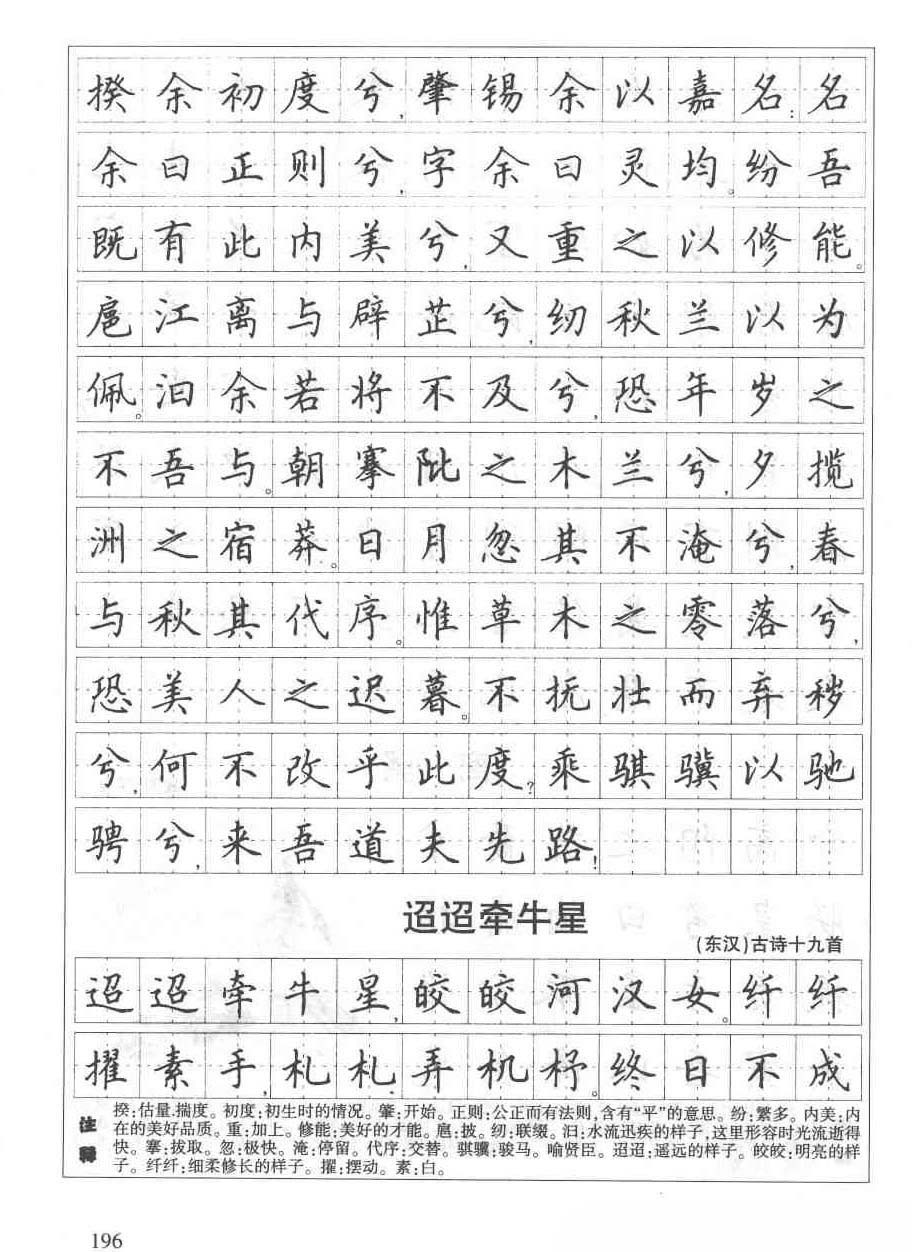 揆余初度兮,肇锡余以嘉名:名
余曰正则兮,字余曰灵均。纷吾
既有此内美兮,又重之以修能。
扈江离与辟芷兮,纫秋兰以为
佩。汩余若将不及兮,恐年岁之
不吾与。朝搴阰之木兰兮,夕揽
洲之宿莽。日月忽其不淹兮,春
与秋其代序。惟草木之零落兮,
恐美人之迟暮。不抚壮而弃秽
兮,何不改乎此度?乘骐骥以驰
骋兮,来吾道夫先路!
迢迢牵牛星
(东汉)古诗十九首
迢迢牵牛星,皎皎河汉女。纤纤
擢素手,札札弄机杼。终日不成
注释
揆:估量、揣度。初度:初生时的情况。肇:开始。正则:公正而有法则,含有“平”的意思。纷:繁多。内美:内
在的美好品质。重:加上。修能:美好的才能。扈:披。纫:联缀。汩:水流迅疾的样子,这里形容时光流逝得
快。搴:拔取。忽:极快。淹:停留。代序:交替。骐骥:骏马。喻贤臣。迢迢:遥远的样子。皎皎:明亮的样
子。纤纤:细柔修长的样子。擢:摆动。素:白。
196